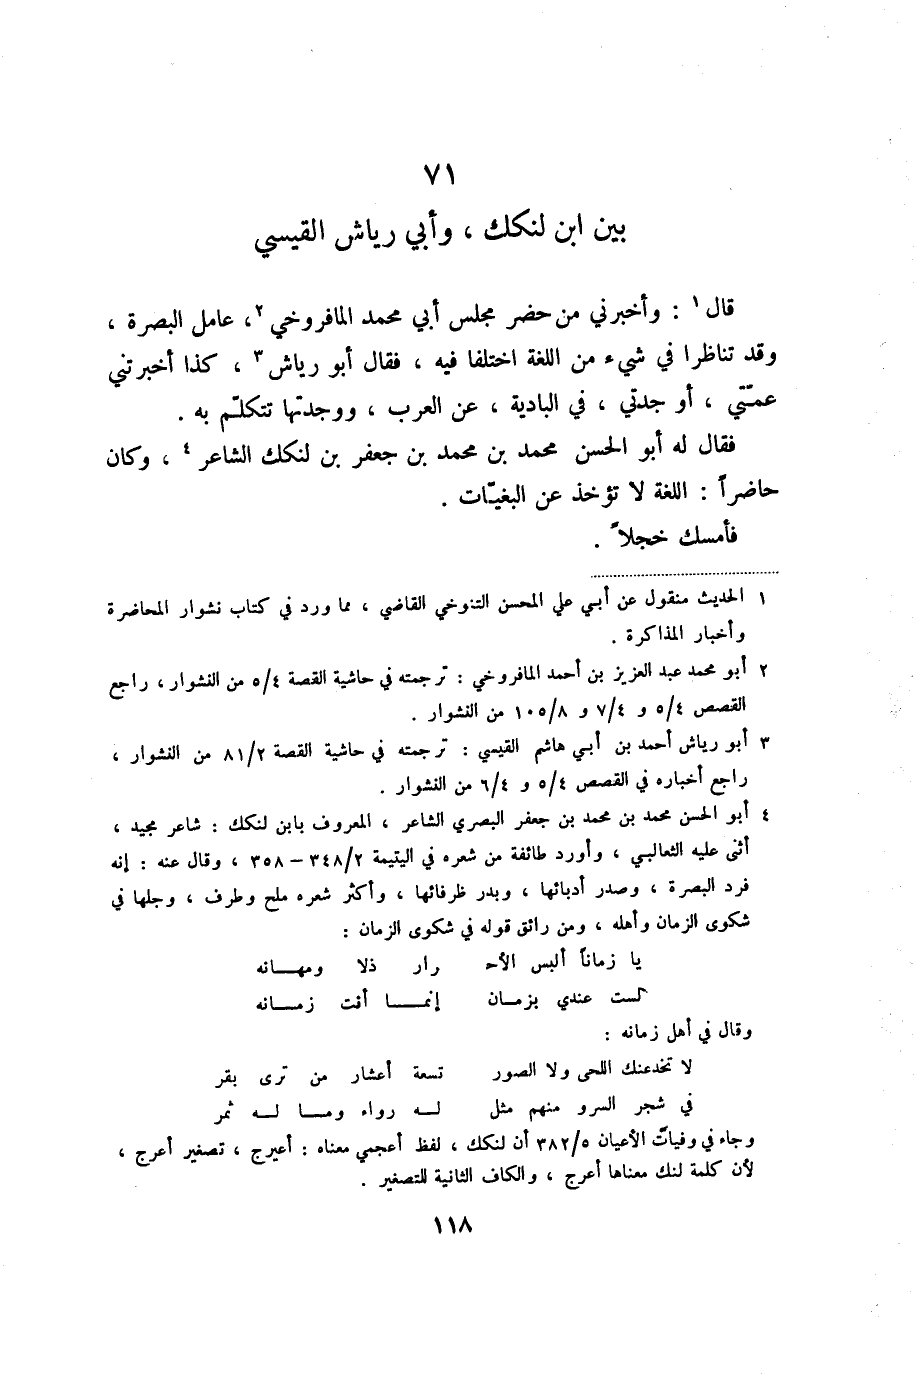 ٧١
بين ابن لنكك ، وأبي رياش القيسي
قال ١ : وأخبرني من حضر مجلس أبي محمد المافروخي ٢ ، عامل البصرة ،
وقد تناظرا في شيء من اللغة اختلفا فيه ، فقال أبو رياش ٣ ، كذا أخبرتني
عمّتي ، أو جدتي ، في البادية ، عن العرب ، ووجدتها تتكلّم به .
فقال له أبو الحسن محمد بن محمد بن جعفر بن لنكك الشاعر ٤ ، وكان
حاضراً : اللغة لا تؤخذ عن البغيّات .
فأمسك خجلاً .
١ الحديث منقول عن أبي علي المحسن التنوخي القاضي ، مما ورد في كتاب نشوار المحاضرة
وأخبار المذاكرة .
٢ أبو محمد عبد العزيز بن أحمد المافروخي : ترجمته في حاشية القصة ٥/٤ من النشوار ، راجع
القصص ٥/٤ و ٧/٤ و ١٠٥/٨ من النشوار .
٣ أبو رياش أحمد بن أبي هاشم القيسي : ترجمته في حاشية القصة ٨١/٢ من النشوار ،
راجع أخباره في القصص ٥/٤ و ٦/٤ من النشوار .
٤ أبو الحسن محمد بن محمد بن جعفر البصري الشاعر ، المعروف بابن لنكك : شاعر مجيد ،
أثنى عليه الثعالبي ، وأورد طائفة من شعره في اليتيمة ٣٤٨/٢ – ٣٥٨ ، وقال عنه : إنه
فرد البصرة ، وصدر أدبائها ، وبدر ظرفائها ، وأكثر شعره ملح وطرف ، وجلها في
شكوى الزمان وأهله ، ومن رائق قوله في شكوى الزمان :
يا زماناً ألبس الأحـ رار ذلا ومهـــانه
لست عندي بزمـان إنمـــا أنت زمـــانه
وقال في أهل زمانه :
لا تخدعنك اللحى ولا الصور تسعة أعشار من ترى بقر
في شجر السرو منهم مثل لـه رواء ومـا لـه ثمر
وجاء في وفيات الأعيان ٣٨٢/٥ أن لنكك ، لفظ أعجمي معناه : أعيرج ، تصغير أعرج ،
لأن كلمة لنك معناها أعرج ، والكاف الثانية للتصغير .
١١٨